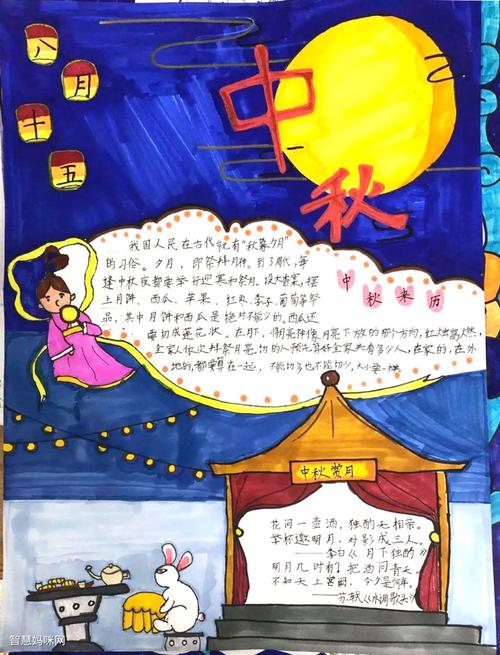 八月
十五
中秋
中秋来历
我国人民在古代就有“秋暮夕月”
的习俗。夕月，即祭拜月神。到了周代，每
逢中秋夜都要举行迎寒和祭月。设大香案，摆
上月饼、西瓜、苹果、红枣、李子、葡萄等祭
品，其中月饼和西瓜是绝对不能少的。西瓜还
要切成莲花状。在月下，将月亮神像月亮下放的那个方向，红烛高燃，
全家人依次拜祭月亮，切的人预先算好全家共有多少人，在家的，在外
地的，都要算在一起，不能切多也不能切少，大小要一样
中秋赏月
花间一壶酒，独酌无相亲。
举杯邀明月，对影成三人。
——李白《月下独酌》
明月几时有？把酒问青天。
不知天上宫阙，今夕是何年。
——苏轼《水调歌头》
智慧妈咪网